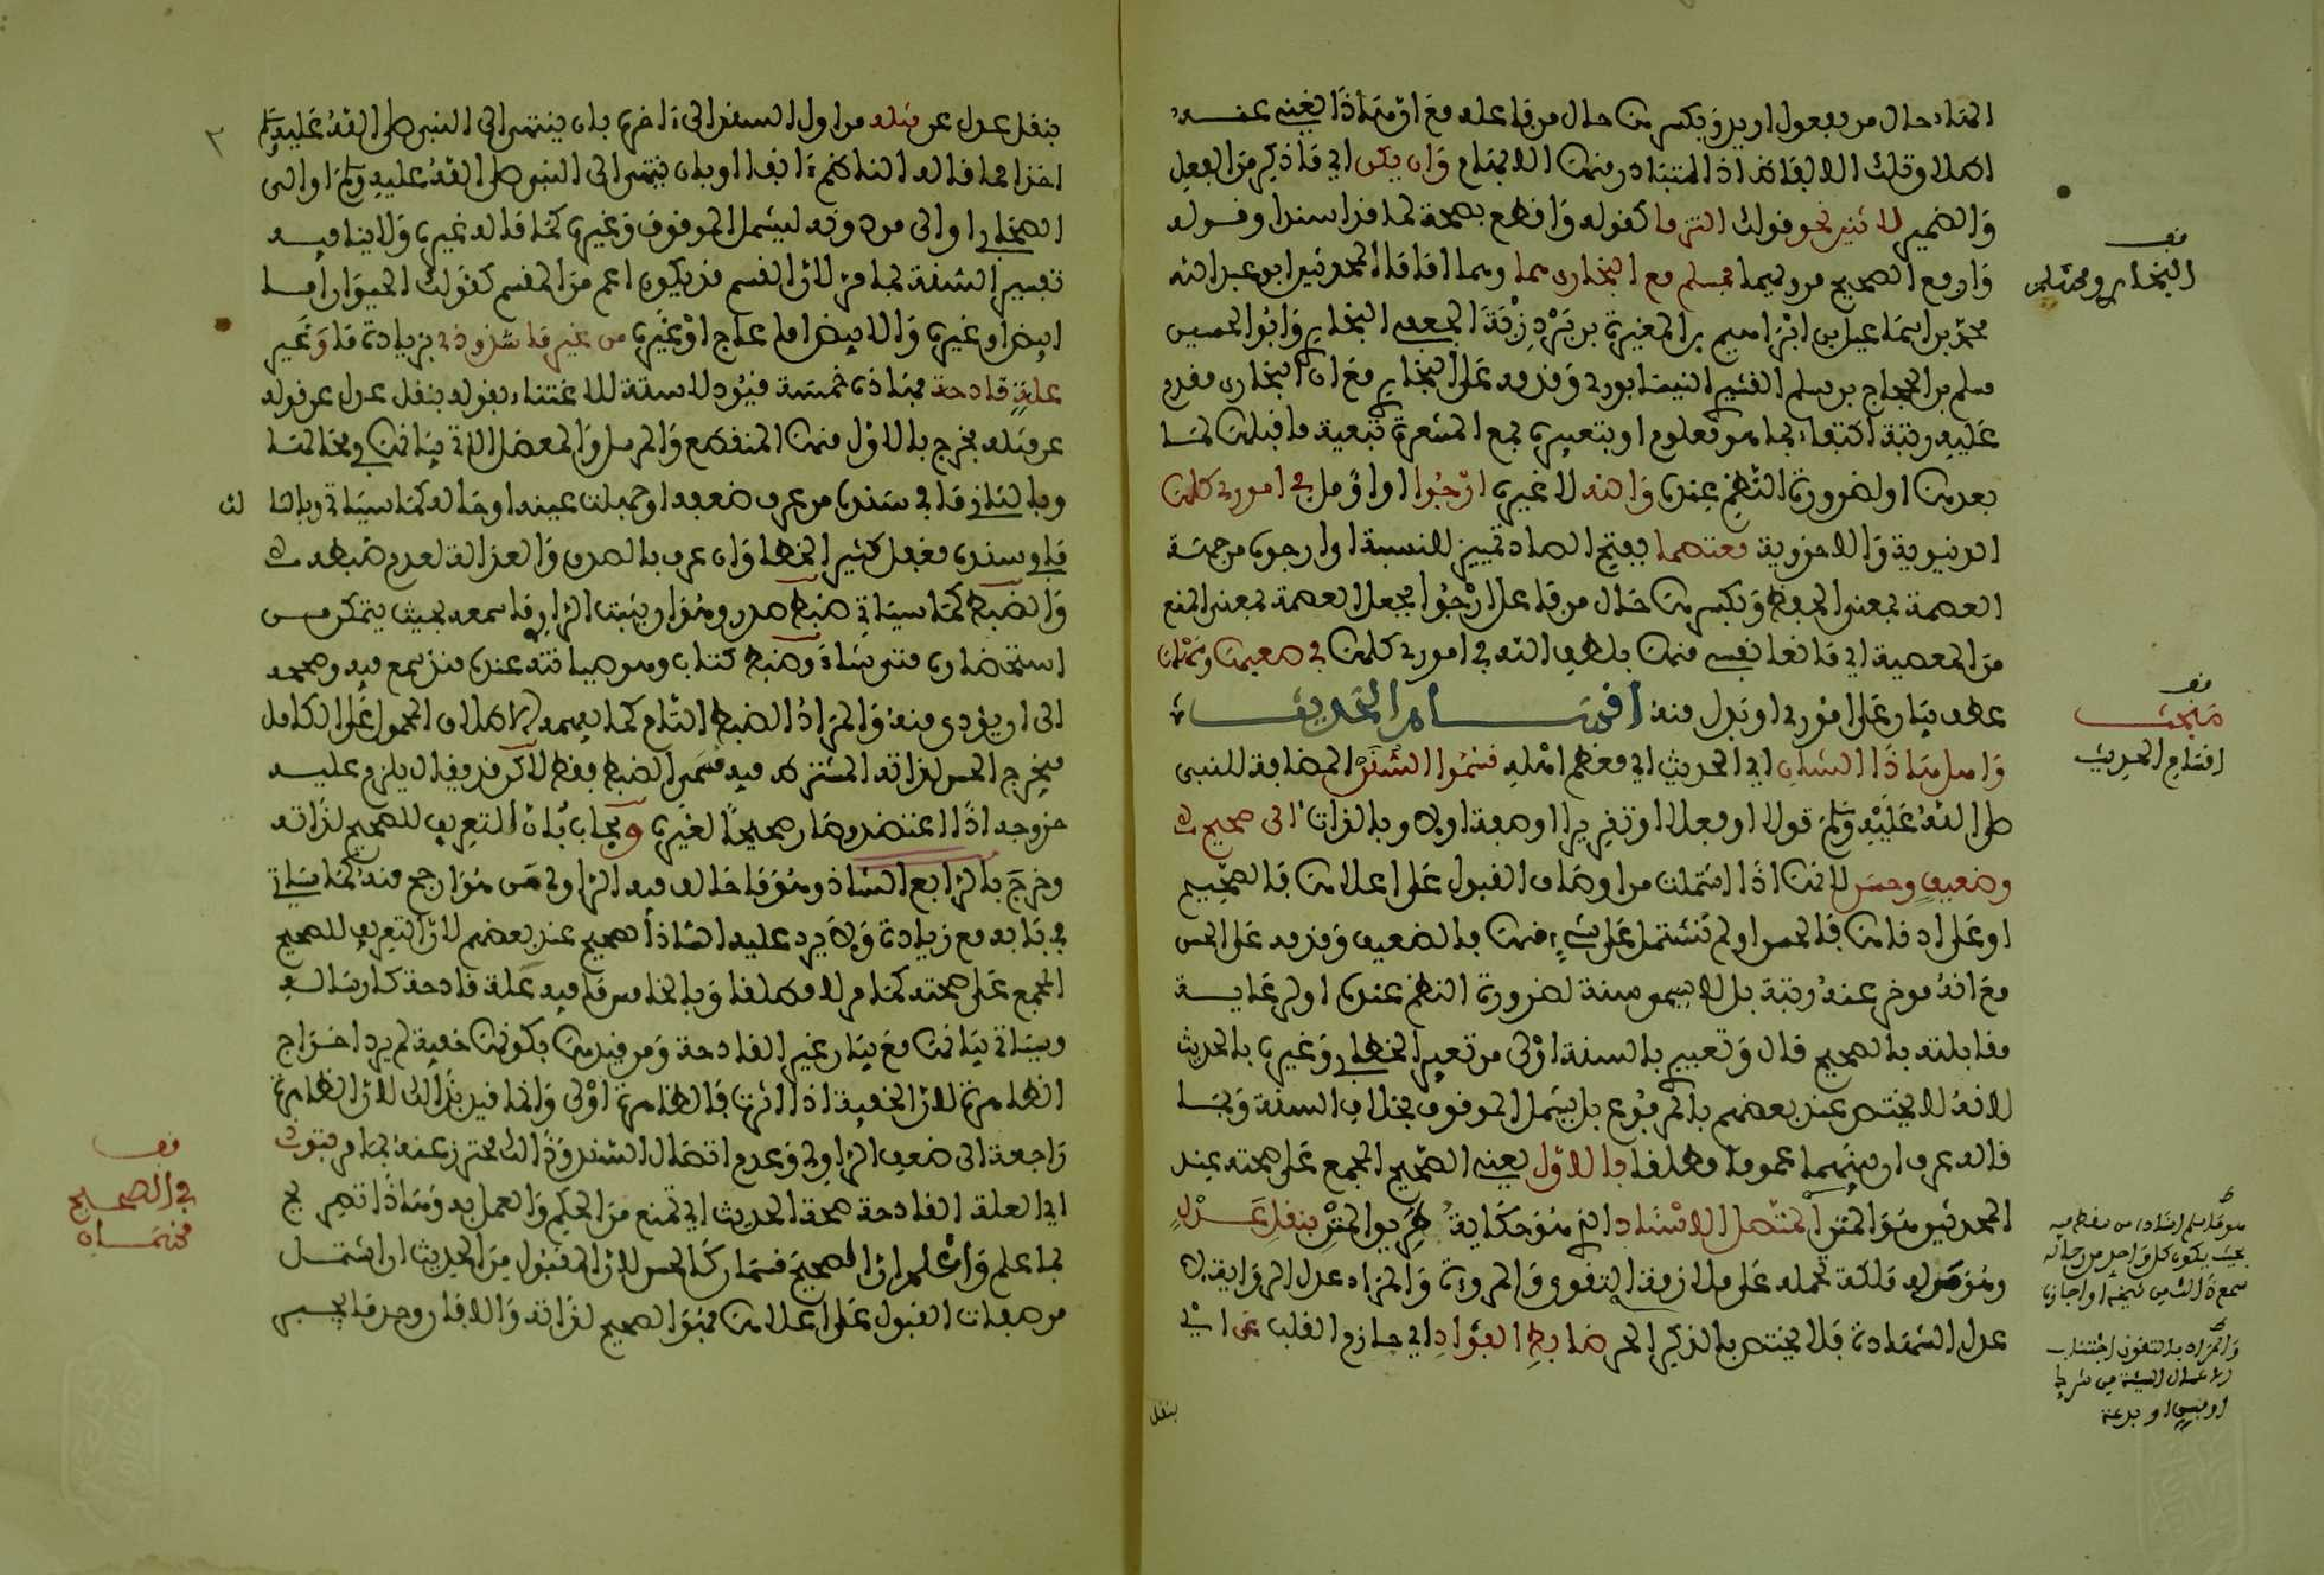 الهاء حال من مفعول اريد وبكسرها حال من فاعله مع ان هذا يغني عنه
اهلا وقلت الابقا اذ المتبادر منها الابهام وان يكن اي ما ذكر من الفعل
والضمير لاثنين نحو قولك التزما كقوله واقطع بصحة لما قد اسندا وقوله
وارفع الصحيح مرويهما فمسلم مع البخاري هما وهما اماما المحدثين ابو عبد الله
محمد بن اسماعيل بن ابراهيم بن المغيرة بن بردزبة الجعفي البخاري وابو الحسين
مسلم بن الحجاج بن مسلم القشيري النيسابوري وقدمه على البخاري مع ان البخاري مقدم
عليه رتبة اكتفاء بما هو معلوم او بتعبيره بمع المشعرة بتبعية ما قبلها لما
بعدها او لضرورة النظم عنده والله لا غيره ارجوا اي اؤمل في اموري كلها
الدنيوية والاخروية معتصما بفتح الصاد تمييز للنسبة اي ارجوه من جهة
العصمة بمعنى الحفظ وبكسرها حال من فاعل ارجوا بجعل العصمة بمعنى المنع
من المعصية اي مانعا نفسي منها بلطف الله في اموري كلها في صعبها وسهلها
عطف بيان على اموري او بدل منه اقسام الحديث
واهل هذا الشان اي الحديث اي معظم اهله قسموا السنن المضافة للنبي
صلى الله عليه وسلم قولا او فعلا او تقريرا او صفة اولا وبالذات الى صحيح
وضعيف وحسن لانها اذا اشتملت من اوصاف القبول على اعلاها فالصحيح
او على ادناها فالحسن او لم تشتمل على شيء منها فالضعيف وقدمه على الحسن
مع انه مؤخر عنه رتبة بل لا يسمى سنة لضرورة النظم عنده او لرعاية
مقابلته بالصحيح قال وتعبيري بالسنة اولى من تعبير الخطابي وغيره بالحديث
لانه لا يختص عند بعضهم بالمرفوع بل يشمل الموقوف بخلاف السنة وبما
قاله عرف ان بينهما عموما مطلقا فالاول يعني الصحيح المجمع على صحته عند
المحدثين هو المتن المتصل الاسناد الذي هو حكاية طريق المتن بنقل عدل
وهو من له ملكة تحمله على ملازمة التقوى والمروءة والمراد عدل الرواية لا
عدل الشهادة فلا يختص بالذكر الحر ضابط الفؤاد اي حازم القلب عن اي
بنقل
قف
البخاري ومسلم
قف
مبحث
اقسام الحديث
هو ما سلم اسناده من سقط فيه
بحيث يكون كل واحد من رجاله
سمع ذالك من شيخه او اجازه
والمراد بالتقوى اجتناب
الاعمال السيئة من شرك
او فسق او بدعة
بنقل عدل عن مثله من اول السند الى اخره بان ينتهي الى النبي صلى الله عليه وسلم
اخذا مما قاله الناظم انفا او بان ينتهي الى النبي صلى الله عليه وسلم او الى
الصحابي او الى من دونه ليشمل الموقوف وغيره كما قاله غيره ولا ينافيه
تفسير السنة بما مر لان القسم قد يكون اعم من المقسم كقولك الحيوان اما
ابيض او غيره والابيض اما عاج او غيره من غير ما شذوذ بزيادة ما وغير
علة قادحة فهاذه خمسة قيود لا ستة للاغتناء بقوله بنقل عدل عن قوله
عن مثله فخرج بالاول منها المنقطع والمرسل والمعضل الاتي بيانها في محالها
وبالثاني ما في سنده من عرف ضعفه او جهلت عينه او حاله كما سياتي وبالثا لث
ما في سنده مغفل كثير الخطا وان عرف بالصدق والعدالة لعدم ضبطه
والضبط كما سياتي ضبط صدر وهو ان يثبت الراوي ما سمعه بحيث يتمكن من
استحضاره متى شاء وضبط كتاب وهو صيانته عنده منذ سمع فيه وصححه
الى ان يؤدى منه والمراد الضبط التام كما يفهمه الاطلاق المحمول على الكامل
فيخرج الحسن لذاته المشترط فيه مسمى الضبط فقط لاكن قد يقال يلزم عليه
خروجه اذا اعتضد وصار صحيحا لغيره ويجاب بان التعريف للصحيح لذاته
وخرج بالرابع الشاذ وهو ما خالف فيه الراوي من هو ارجح منه كما سياتي
في بابه مع زيادة ولا يرد عليه الشاذ الصحيح عند بعضهم لان التعريف للصحيح
المجمع على صحته كما مر لا مطلقا وبالخامس ما فيه علة قادحة كارساله
وسياتي بيانها مع بيان غير القادحة ومن قيدها بكونها خفية لم يرد اخراج
الظاهرة لان الخفية اذا اثرت فالظاهرة اولى وانما قيد بذالك لان الظاهرة
راجعة الى ضعف الراوي وعدم اتصال السند وذالك محترز عنه بما مر
اي العلة القادحة صحة الحديث اي تمنع من الحكم والعمل به وهاذا تصريح
بما علم واعلم ان الصحيح قسمان كالحسن لان المقبول من الحديث ان اشتمل
من صفات القبول على اعلاها فهو الصحيح لذاته والا فان وجد ما يجبر
قف
في الصحيح
قسمان
٢